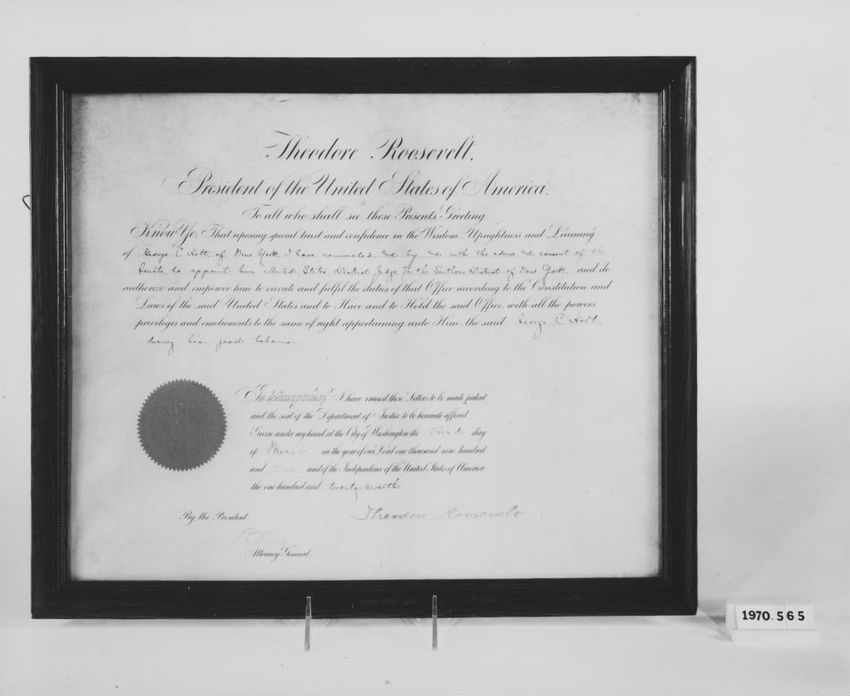 Theodore Roosevelt,
President of the United States of America.
To all who shall see these Presents Greeting
Know Ye, That reposing special trust and confidence in the Wisdom Uprightness and Learning
of George C. Holt, of New York, I have nominated and by and with the advice and consent of the
Senate, do appoint him United States District Judge for the Southern District of New York and do
authorize and empower him to execute and fulfil the duties of that Office according to the Constitution and
Laws of the said United States and to Have and to Hold the said Office with all the powers
privileges and emoluments to the same of right appertaining unto Him, the said George C. Holt,
during his good behavior
In testimony whereof I have caused these Letters to be made patent
and the seal of the Department of Justice to be hereunto affixed
Given under my hand at the City of Washington the third day
of March in the year of our Lord one thousand nine hundred
and and of the Independence of the United States of America
the one hundred and twenty seventh
By the President Theodore Roosevelt
Attorney General.
1970.565